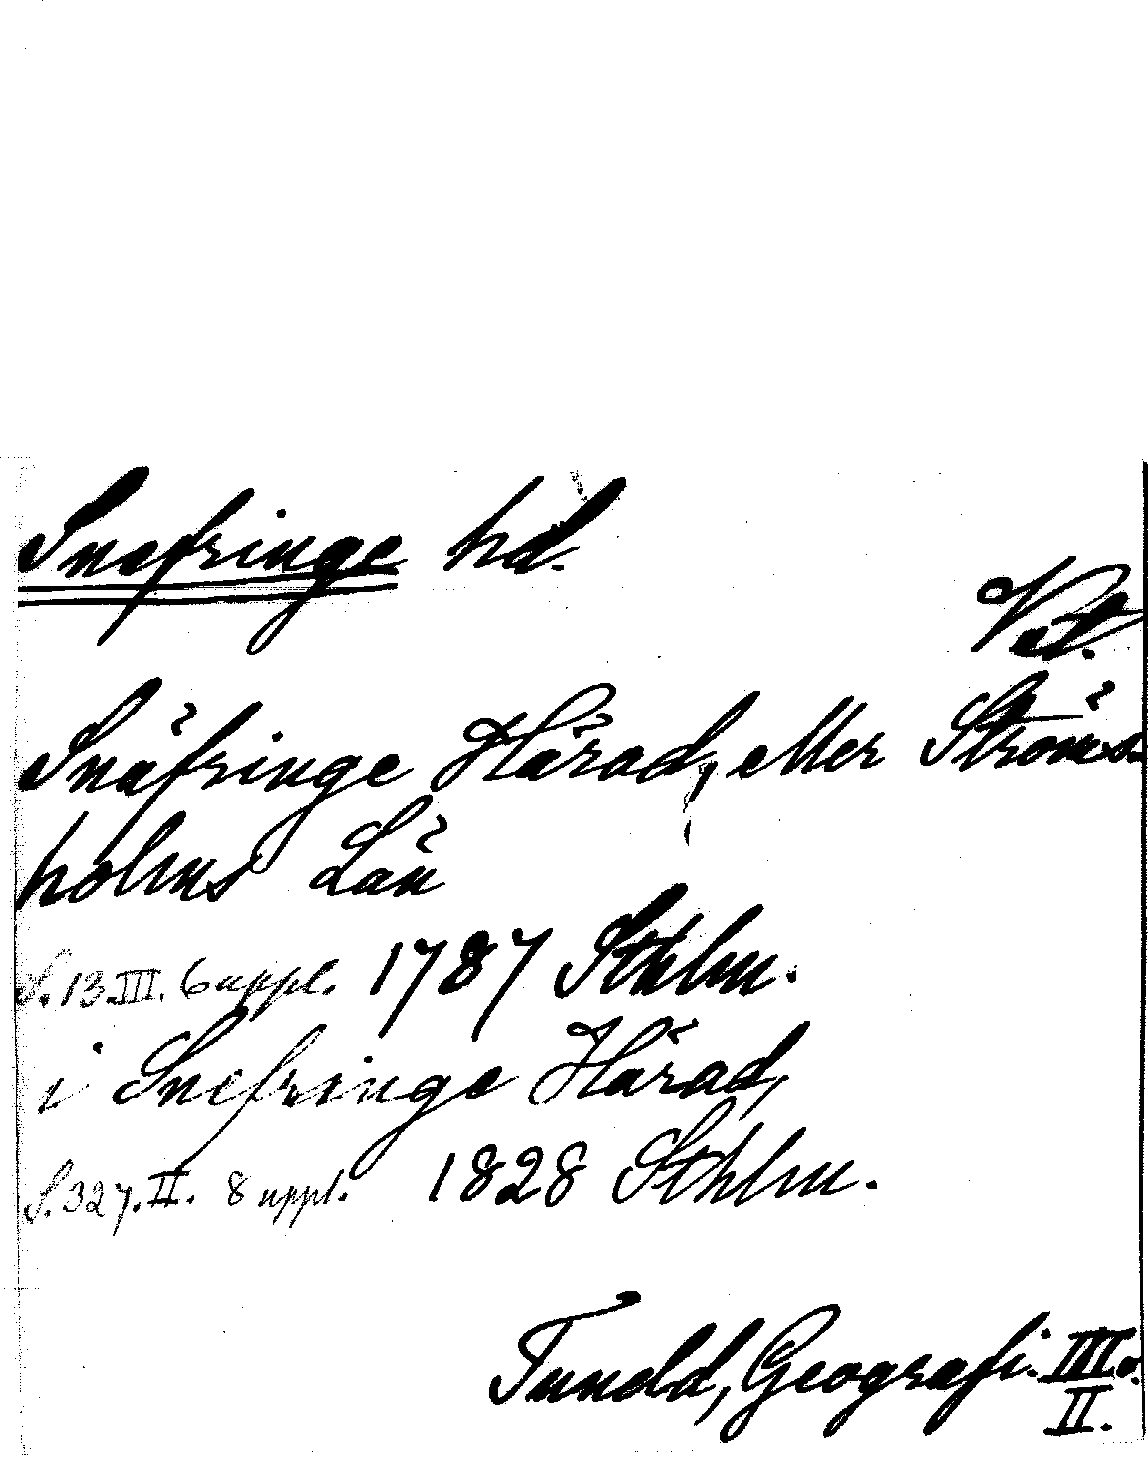 Snefringe hd.
Vstl.
Snäfringe Härad, eller Ströms
holms Län
S. 13. III. 6 uppl. 1787 Sthlm.
i Snefringe Härad,
S. 327. II. 8 uppl. 1828 Sthlm.
Tuneld, Geografi. III o.
II.